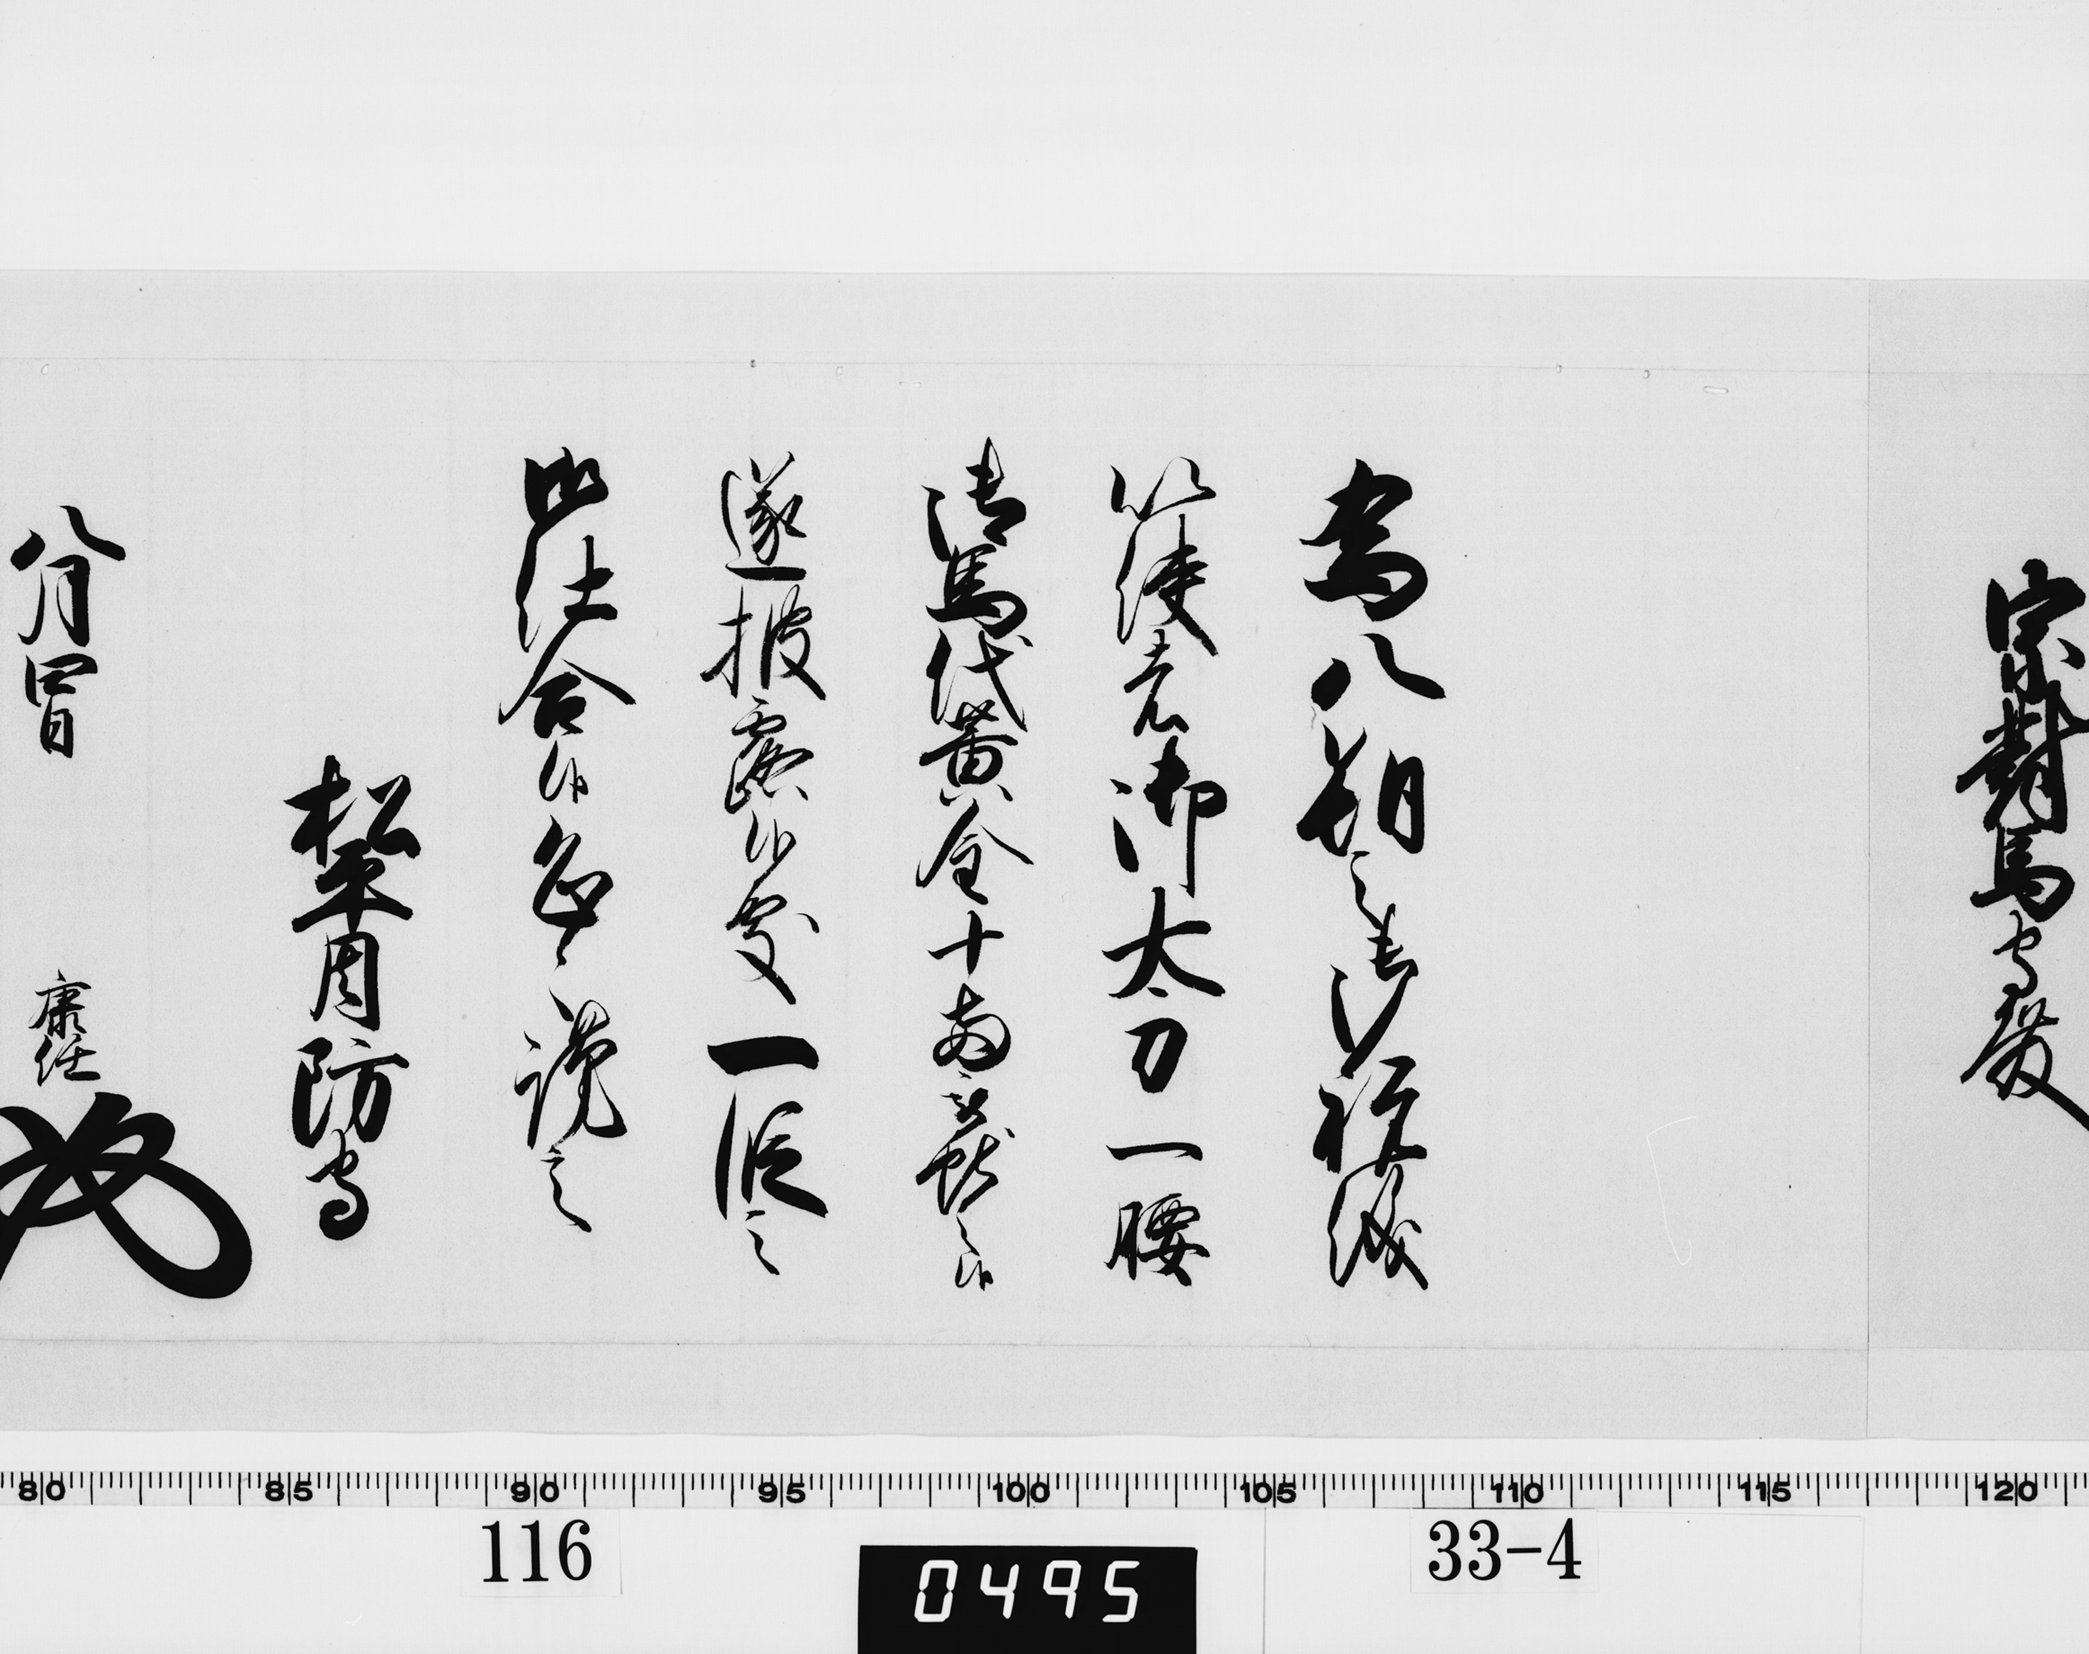 宗對馬守殿
為八朔之御祝儀
以使者御太刀一腰
御馬代黄金十両被獻之候
遂披露候處一段之
御仕合候恐々謹言
松平周防守
八月四日
康任
80 85 90 95 100 105 110 115 120
116
33-4
0495